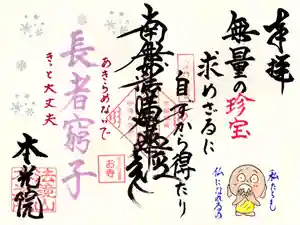 奉拝
無量の珍宝
求めざるに
自ずから得たり
あきらめないで
長者窮子
きっと大丈夫
本光院
お寺
私たちも
仏になれるの